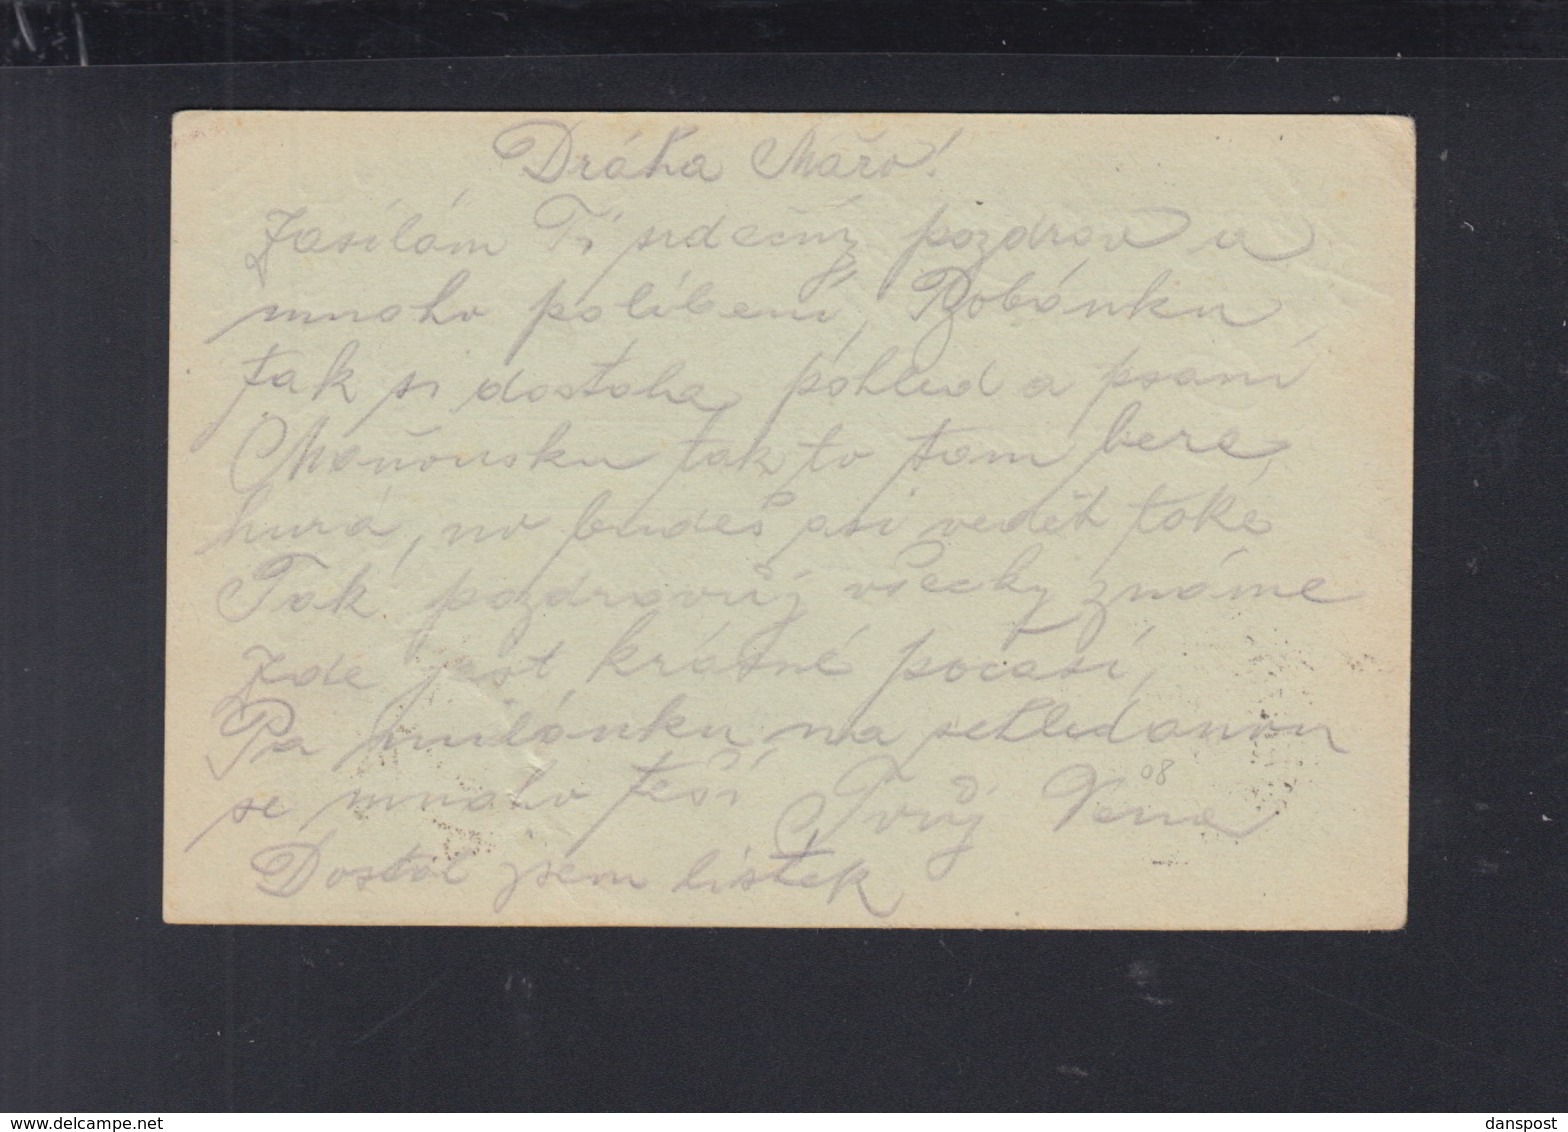 Dráha Mařo!
Zasílám Ti srdečný pozdrav a
mnoho políbení, Zobánku
tak si dostala pohled a psaní
Maňousku tak to tam bere
hurá, no budeš asi vedět také
Tak pozdravůj všecky známe
Zde jest krásné počasí,
Pa milánku na schledanou
se mnoho těší Tvůj Vena
08
Dostal jsem lístek
delcampe.net
danspost